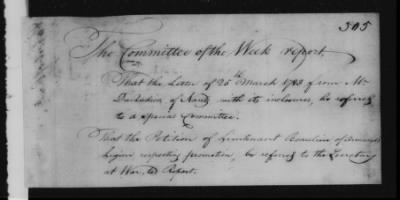 505
The Committee of the Week report
That the Letter of 25th March 1783 from Mr
of Nantz with its inclosures, be referred
to a special Committee.
That the Petition of Lieutenant Beaulieu of Armand's
Legion respecting promotion, be referred to the Secretary
at War, to Report.